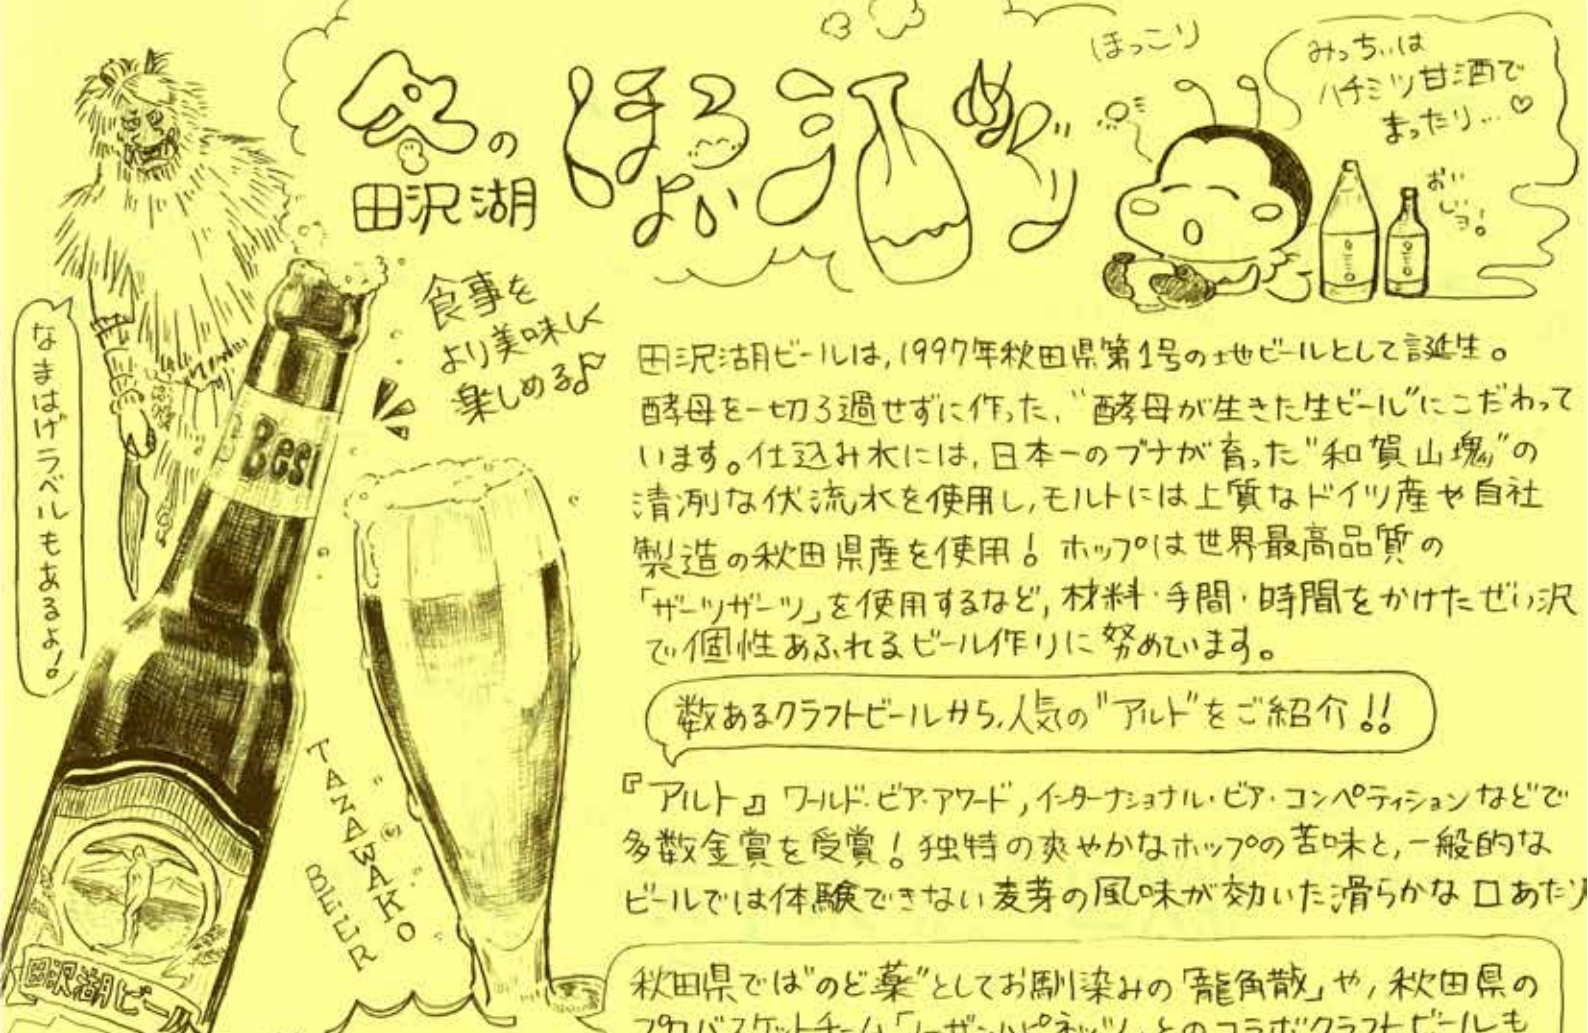 冬の
田沢湖
ほろよい酒めぐり
ほっこり
みっちぃは
ハチミツ甘酒で
まったり…♡
おい
しヨ!
なまはげラベルもあるよ!
食事を
より美味しく
楽しめる♪
Best
田沢湖ビールは,1997年秋田県第1号の地ビールとして誕生。
酵母を一切ろ過せずに作った,"酵母が生きた生ビール"にこだわって
います。仕込み水には,日本一のブナが育った"和賀山塊"の
清冽な伏流水を使用し,モルトには上質なドイツ産や自社
製造の秋田県産を使用!ホップは世界最高品質の
「ザーツザーツ」を使用するなど,材料・手間・時間をかけたぜい沢
で個性あふれるビール作りに努めています。
数あるクラフトビールから,人気の"アルト"をご紹介!!
『アルト』ワールド・ビア・アワード,インターナショナル・ビア・コンペティションなどで
多数金賞を受賞!独特の爽やかなホップの苦味と,一般的な
ビールでは体験できない麦芽の風味が効いた滑らかな口あたり
TAZAWAKO
BEER
田沢湖ビール
秋田県では"のど薬"としてお馴染みの「龍角散」や,秋田県の
プロバスケットチーム「ノーザンハピネッツ」とのコラボクラフトビールも